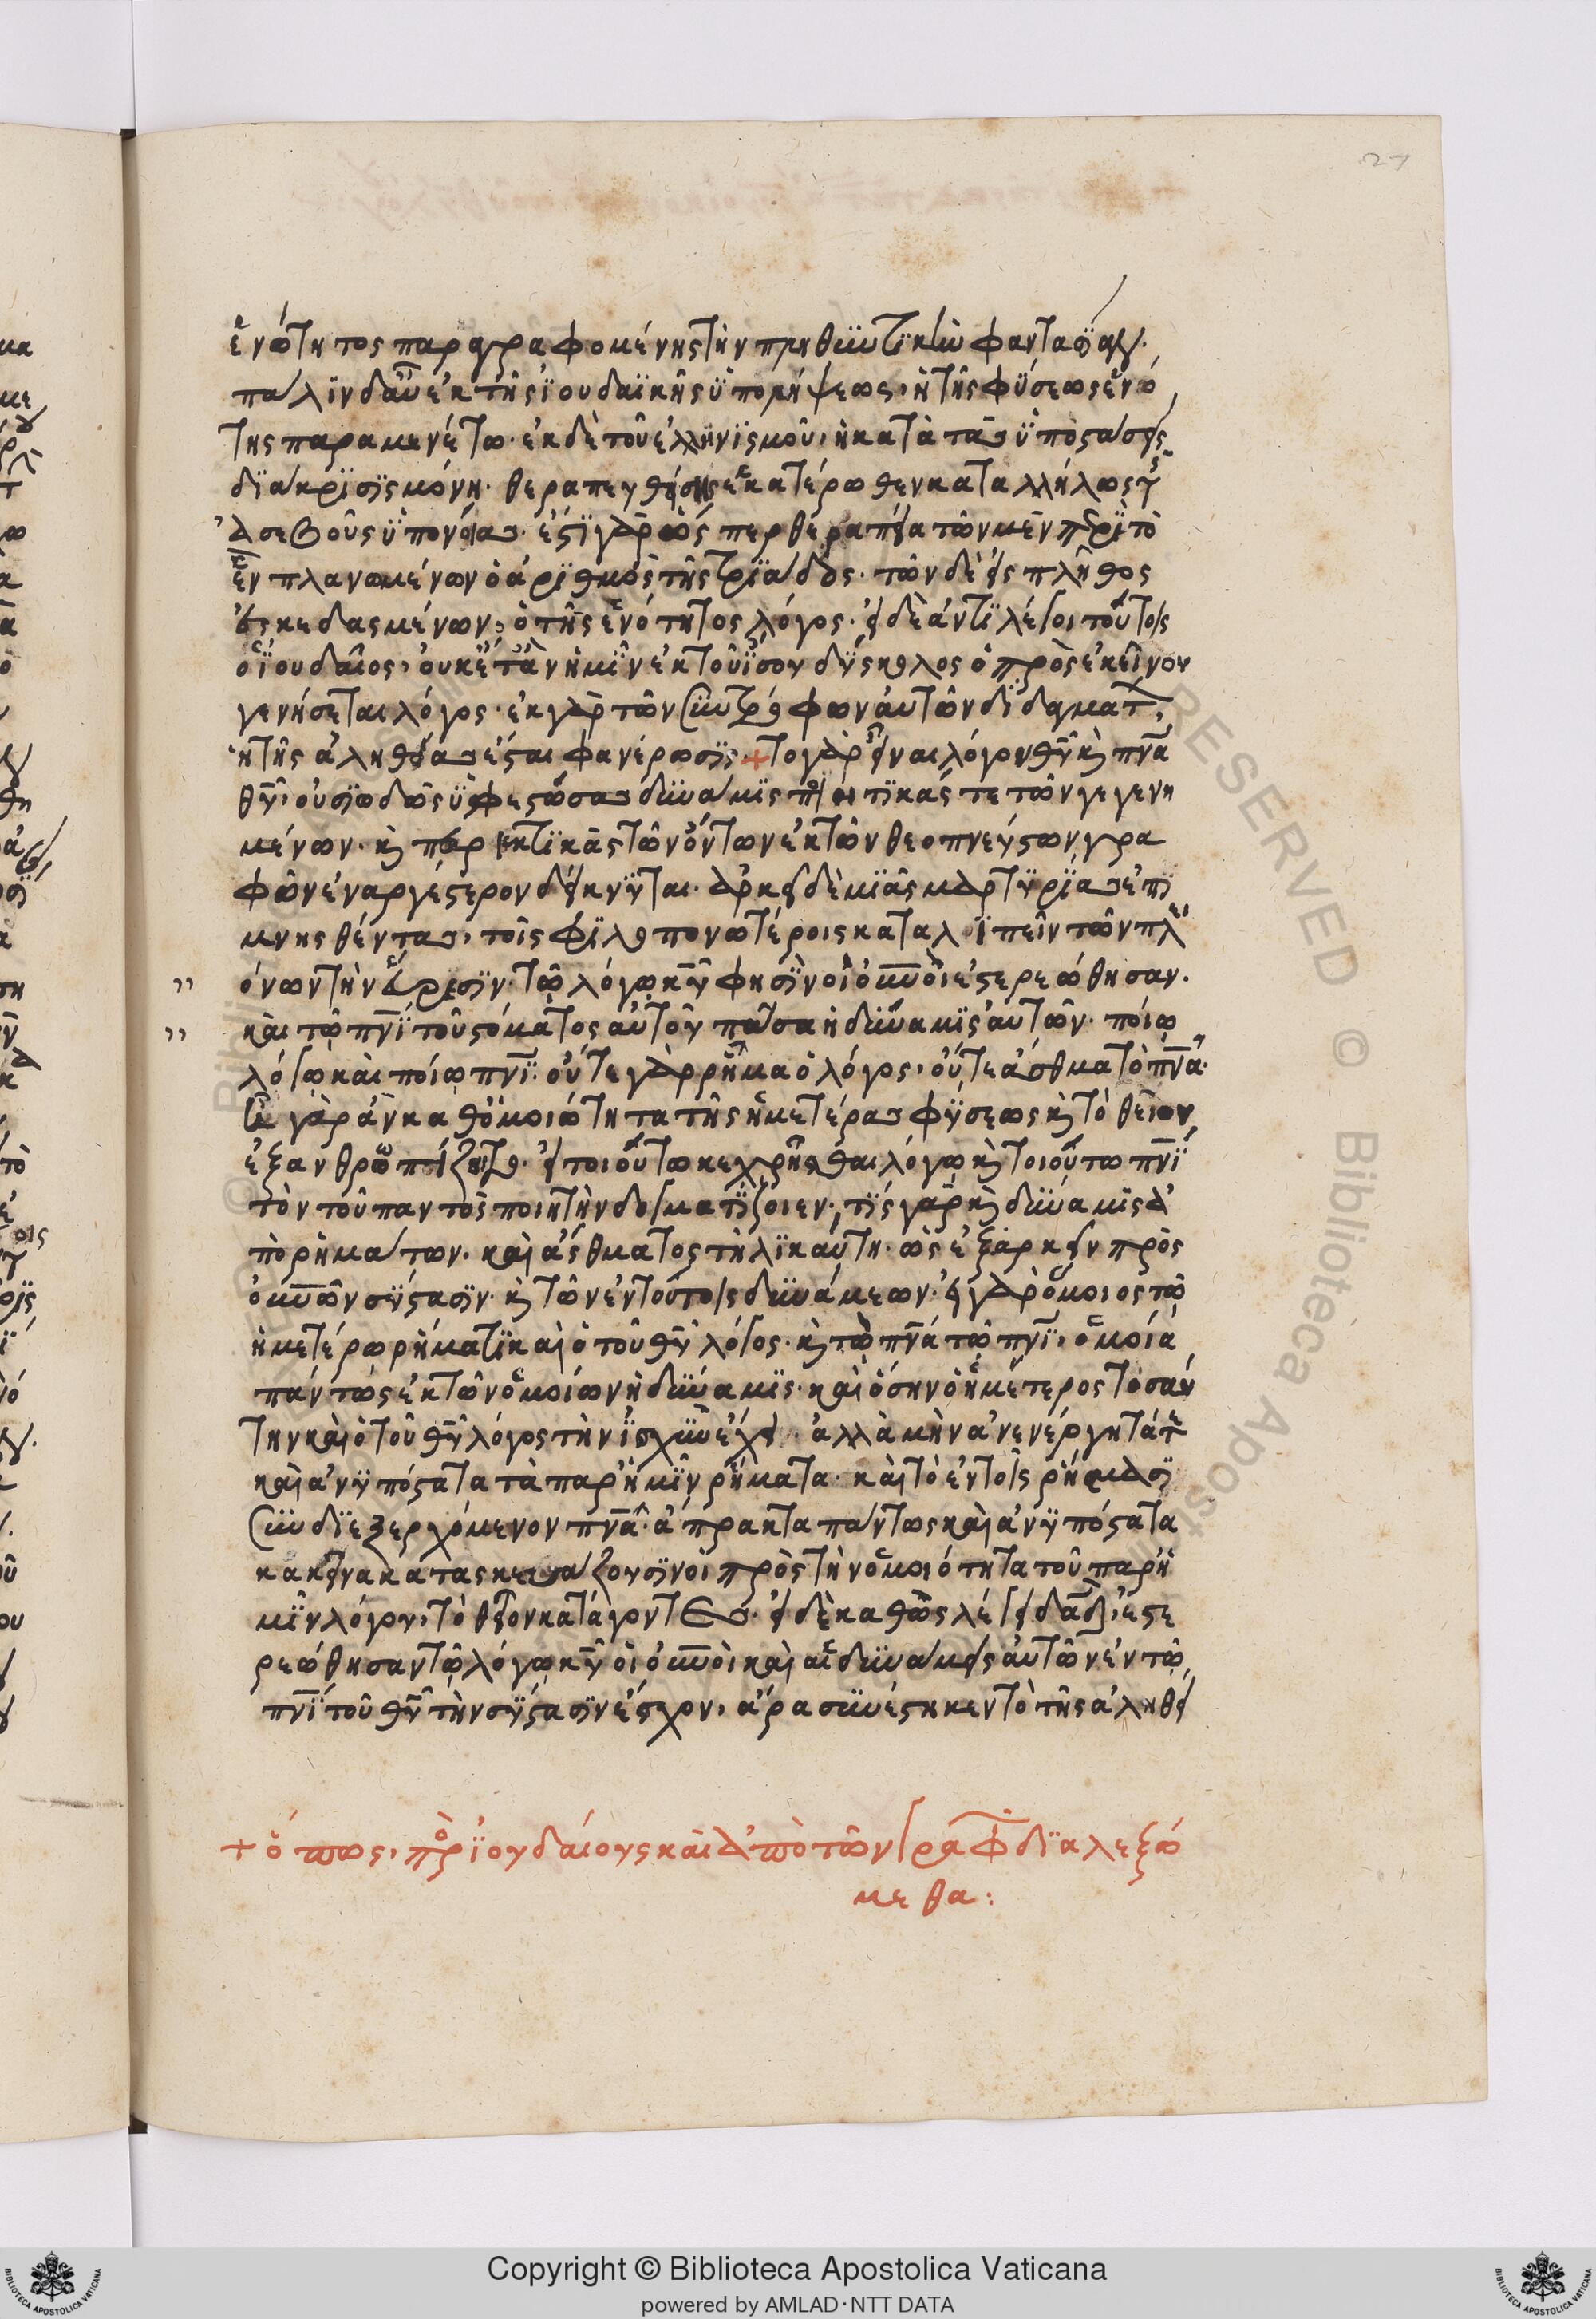 27
ἑνότητος παραγραφομένης τὴν πληθυντικὴν φαντασίαν.
πάλιν δ' αὖ ἐκ τῆς ϊουδαϊκῆς ϋπολήψεως, ἡ τῆς φύσεως ἑνό
της παραμενέτω. ἐκ δὲ τοῦ ἑλληνισμοῦ, ἡ κατὰ τὰς ϋποστάσεις
διάκρισις μόνη. θεραπευθείσης ἑκατέρωθεν καταλλήλως τῆς
ἀσεβοῦς ϋπονοίας. ἔστι γὰρ ὥσπερ θεραπεία τῶν μὲν περὶ τὸ
ἓν πλανωμένων ὁ ἀριθμὸς τῆς τριάδος. τῶν δὲ εἰς πλῆθος
ἐσκεδασμένων, ὁ τῆς ἑνότητος λόγος. εἰ δὲ ἀντιλέγοι τούτοις
ὁ ϊουδαῖος, οὐκέτ' ἂν ἡμῖν ἐκ τοῦ ἴσου δύσκολος ὁ πρὸς ἐκεῖνον
γενήσεται λόγος. ἐκ γὰρ τῶν συντρόφων αὐτῶν διδαγμάτ,
ἡ τῆς ἀληθείας ἔσται φανέρωσις. + τὸ γὰρ εἶναι λόγον θυ κὶ πνα
θυ, οὐσιωδῶς ϋφεστώσας δυνάμεις ποιητικάς τε τῶν γεγενη
μένων. κὶ περιεκτικὰς τῶν ὄντων ἐκ τῶν θεοπνεύστων γρα
φῶν ἐναργέστερον δείκνυται. ἀρκεῖ δὲ μιᾶς μαρτυρίας ἐπι
μνησθέντας, τοῖς φιλοπονωτέροις καταλιπεῖν τῶν πλει
όνων τὴν εὕρεσιν. τῷ λόγῳ κυ φησὶν οἱ οὐνοὶ ἐστερεώθησαν.
καὶ τῷ πνϊ τοῦ στόματος αὐτοῦ πᾶσα ἡ δύναμις αὐτῶν. ποίῳ
λόγῳ καὶ ποίῳ πνϊ. οὔτε γὰρ ῥῆμα ὁ λόγος, οὔτε ἆσθμα τὸ πνα.
ἦ γὰρ ἂν καθ' ὁμοιότητα τῆς ἡμετέρας φύσεως κὶ τὸ θεῖον
ἐξανθρωπίζοιτο. εἰ τοιούτῳ κεχρῆσθαι λόγῳ κὶ τοιούτῳ πνϊ
τὸν τοῦ παντὸς ποιητὴν δογματίζοιεν. τίς γὰρ κὶ δύναμις ἀ
πὸ ῥημάτων. καὶ ἄσθματος τηλικαύτη. ὡς ἐξαρκεῖν πρὸς
οὐνῶν σύστασιν. κὶ τῶν ἐν τούτοις δυνάμεων. εἰ γὰρ ὅμοιος τῷ
ἡμετέρῳ ῥήματι καὶ ὁ τοῦ θυ λόγος. κὶ τὸ πνα τῷ πνϊ, ὁμοία
πάντως ἐκ τῶν ὁμοίων ἡ δύναμις. καὶ ὅσην ὁ ἡμέτερος τοσαύ
την καὶ ὁ τοῦ θυ λόγος τὴν ἰσχὺν ἔχει. ἀλλὰ μὴν ἀνενέργητά τε
καὶ ἀνυπόστατα τὰ παρ' ἡμῖν ῥήματα. καὶ τὸ ἐν τοῖς ῥήμασι
συνδιεξερχόμενον πνα. ἄπρακτα πάντως καὶ ἀνυπόστατα
κἀκεῖνα κατασκευάζουσιν οἱ πρὸς τὴν ὁμοιότητα τοῦ παρ' ἡ
μῖν λόγου, τὸ θεῖον κατάγοντες. εἰ δὲ καθὼς λέγει δαδ, ἐστε
ρεώθησαν τῷ λόγῳ κυ οἱ οὐνοὶ καὶ αἱ δυνάμεις αὐτῶν ἐν τῷ
πνϊ τοῦ θυ τὴν σύστασιν ἔσχον, ἄρα συνέστηκεν τὸ τῆς ἀληθεί
+ ὅπως, πρὸς ϊουδαίους καὶ ἀπὸ τῶν γραφ διαλεξώ
μεθα:
Copyright © Biblioteca Apostolica Vaticana
powered by AMLAD·NTT DATA